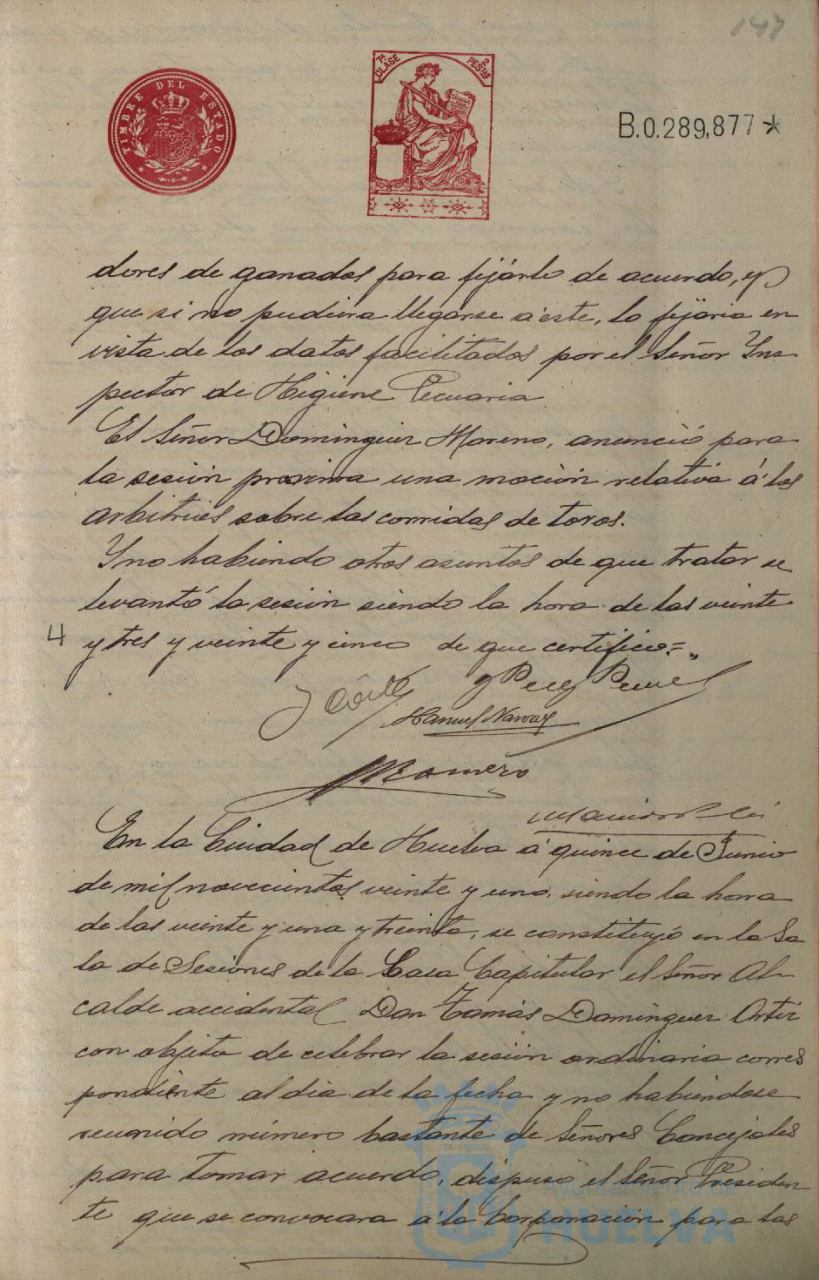 147
TIMBRE DEL ESTADO
7ª CLASE
2 PESTAS
B.0.289,877*
dores de ganados para fijárlo de acuerdo, y
que si no pudiera llegarse á este, lo fijaria en
vista de los datos facilitados por el Señor Ins
pector de Higiene Pecuaria
El Señor Dominguez Moreno, anunció para
la sesión proxima una moción relativa á los
arbitrios sobre las corridas de toros.
Y no habiendo otros asuntos de que tratar se
levantó la sesión siendo la hora de las veinte
4
y tres y veinte y cinco de que certifico=
Manuel Navarro
Romero
En la Ciudad de Huelva á quince de Junio
de mil novecientos veinte y uno, siendo la hora
de las veinte y una y treinta, se constituyó en la Sa
la de Sesiones de la Casa Capitular el Señor Al-
calde accidental Don Tomás Dominguez Ortiz
con objeto de celebrar la sesión ordinaria corres
pondiente al dia de la fecha y no habiendose
reunido número bastante de Señores Concejales
para tomar acuerdo, dispuso el Señor Presiden
te que se convocara á la Corporación para las
Ayuntamiento de
HUELVA